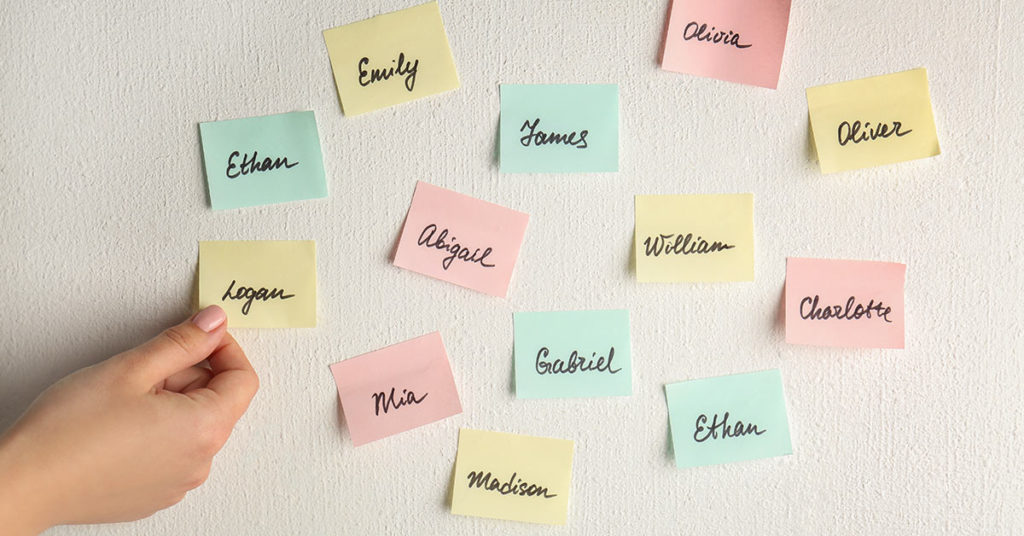 Olivia
Emily
Oliver
James
Ethan
Abigail
William
Logan
Charlotte
Gabriel
Mia
Ethan
Madison